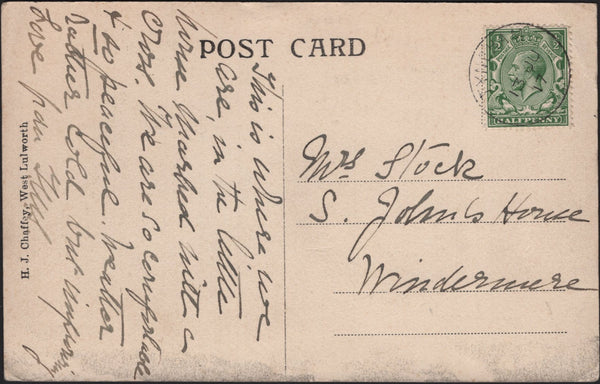 POST CARD
This is where we
are in the little
house marked with a
Cross. We are so comfortable
& so peaceful. Weather
rather cold but improving
Love from
H. J. Chaffey, West Lulworth
HALFPENNY
Mrs Stock
S. John's House
Windermere